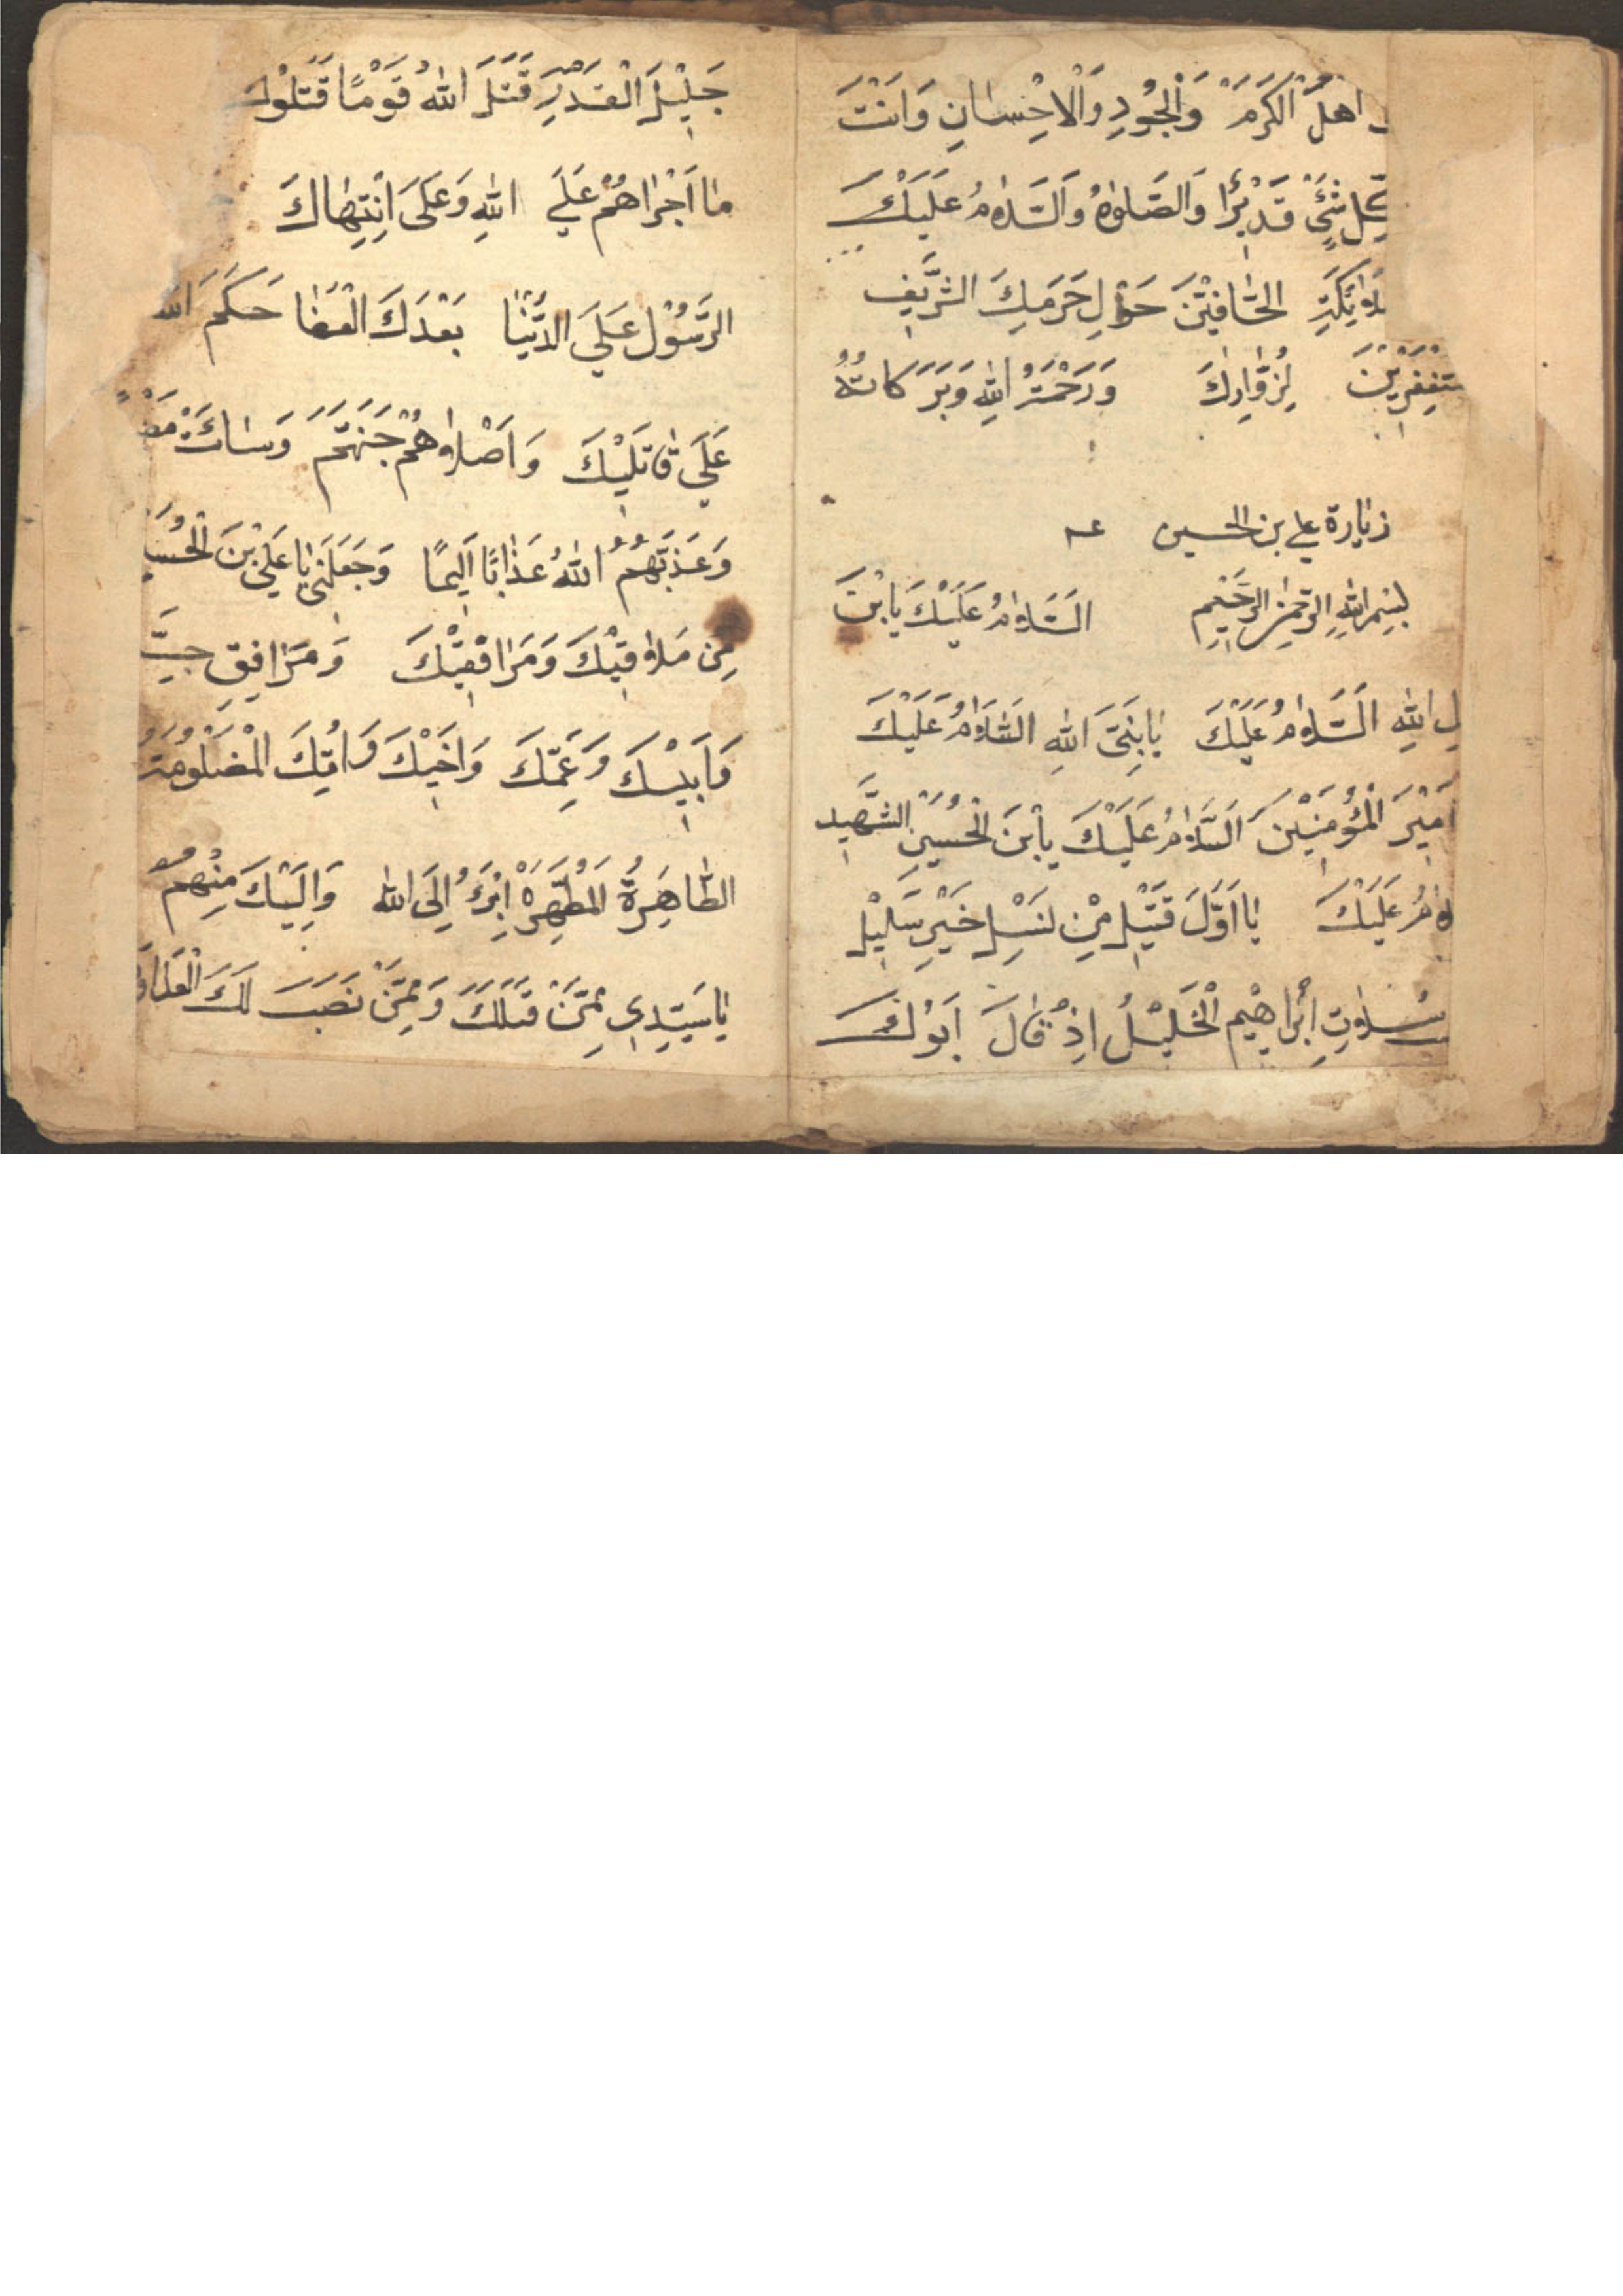 اهلُ الكَرَمَ وَالْجُودِ وَالْاِحْسانِ وَاَنْتَ
كلِّ شَئٍ قَديْرًا وَالصَّلوٰةُ وَالسَّلامُ عَلَيْكَ
الحٰافِيْنَ حَوْلِ حَرَمِكَ الشَّرِيْفِ
لِزُوّٰارِكَ وَرَحْمَتُ اللهِ وَبَرَكاتُهُ
زيارة علي بن الحسين عـ
بِسْمِ اللهِ الرَّحْمٰنِ الرَّحِيْمِ السَّلامُ عَلَيْكَ يا بْنَ
لِ اللهِ السَّلامُ عَلَيْكَ يابنَ نَبِيَّ اللهِ السَّلامُ عَلَيْكَ
اَمِيْرَ الْمُؤْمِنِيْنَ السَّلامُ عَلَيْكَ يابْنَ الْحُسَيْنِ الشَّهِيْدِ
لامُ عَلَيْكَ يا اَوَّلَ قَتِيْلٍ مِنْ نَسْلِ خَيْرِ سَلِيْلٍ
سُلاٰلَةِ اِبْراهِيْمِ الْخَلِيْلُ اِذْ قٰالَ اَبُوْكَ
جَلِيْلَ الْقَدْرِ قَتَلَ اللهُ قَوْمًا قَتَلُوْكَ
ما اَجْراهُمْ عَلَي اللهِ وَعَلَى اِنْتِهٰاكَ
الرَّسُوْلِ عَلَيَ الدُّنْيٰا بَعْدَكَ الْعَفٰا حَكَمَ الله
عَلَي قٰاتِلِيْكَ وَاَصْلاٰهُمْ جَهَنَّمَ وَسٰائَتْ
وَعَذَّبَهُمُ اللهُ عَذٰابًا اَلِيمًا وَجَعَلَنِي يا عَلَيَ بْنَ الْحُسَيْ
مِن مَلاٰقِيْكَ وَمَرٰافِقِيْكَ وَمَرٰافِقِ جَدِّ
وَاَبِيْكَ وَعَمِّكَ وَاَخِيْكَ وَاُمِّكَ الْمَضْلُومَةُ
الطّٰاهِرَةُ الْمُطَهَّرَةْ اَبْرَءُ اِلَى الله وَاِلَيْكَ مِنْهُمْ
يا سَيِّدِي مِمَّنْ قَتَلَكَ وَمِمَّنْ نَصَبَ لَكَ الْعَدٰاوَ